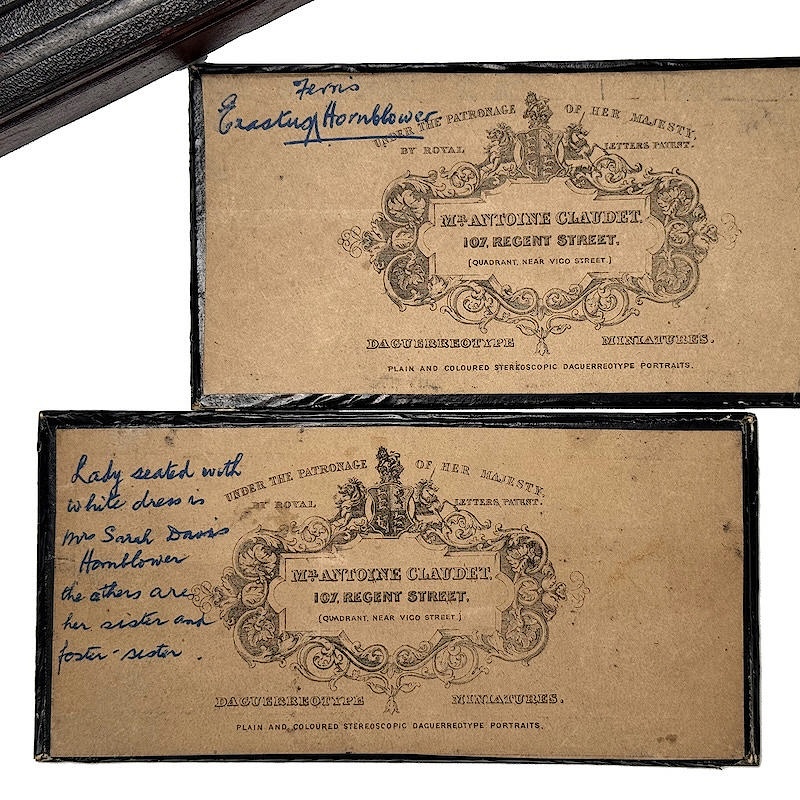 Ferris
Erastus Hornblower
UNDER THE PATRONAGE OF HER MAJESTY,
BY ROYAL LETTERS PATENT.
Mr. ANTOINE CLAUDET.
107, REGENT STREET,
(QUADRANT, NEAR VIGO STREET.)
DAGUERREOTYPE MINIATURES.
PLAIN AND COLOURED STEREOSCOPIC DAGUERREOTYPE PORTRAITS.
Lady seated with
white dress is
Mrs Sarah Davis
Hornblower
the others are
her sister and
foster-sister.
UNDER THE PATRONAGE OF HER MAJESTY,
BY ROYAL LETTERS PATENT.
Mr. ANTOINE CLAUDET,
107, REGENT STREET,
(QUADRANT, NEAR VIGO STREET.)
DAGUERREOTYPE MINIATURES.
PLAIN AND COLOURED STEREOSCOPIC DAGUERREOTYPE PORTRAITS.